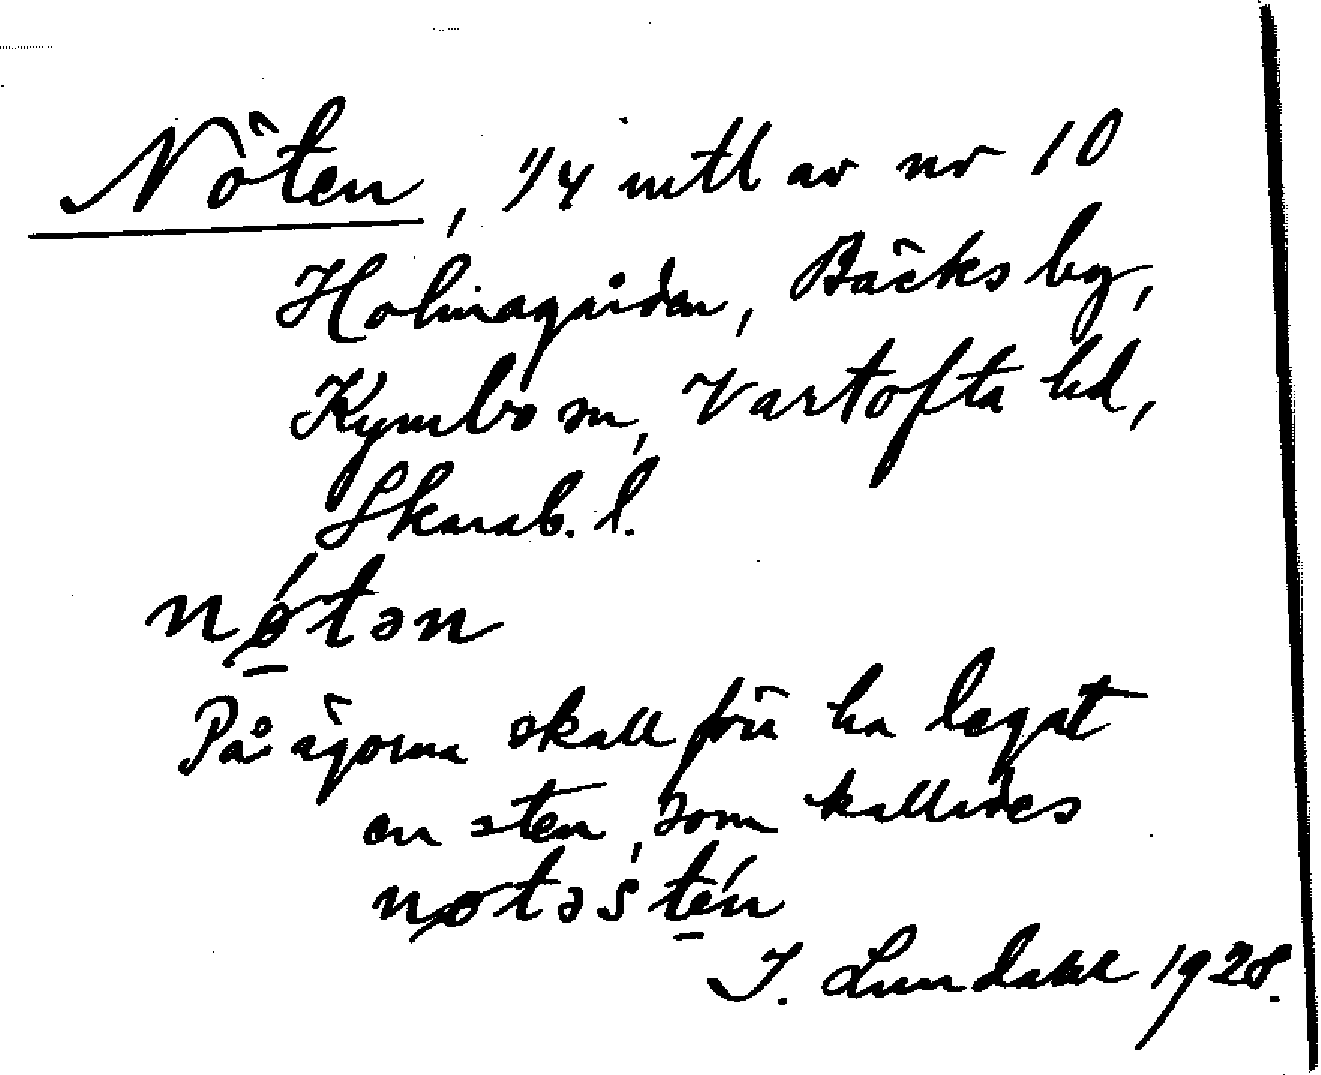 Nöten, 1/4 mtl av nr 10
Holmagården, Bäcks by,
Kymbo sn, Vartofta hd,
Skarab. l.
nǿ̱tən
På ägorna skall förr ha legat
en sten, som kallades
nøtəsté̱n
I. Lundahl 1928.